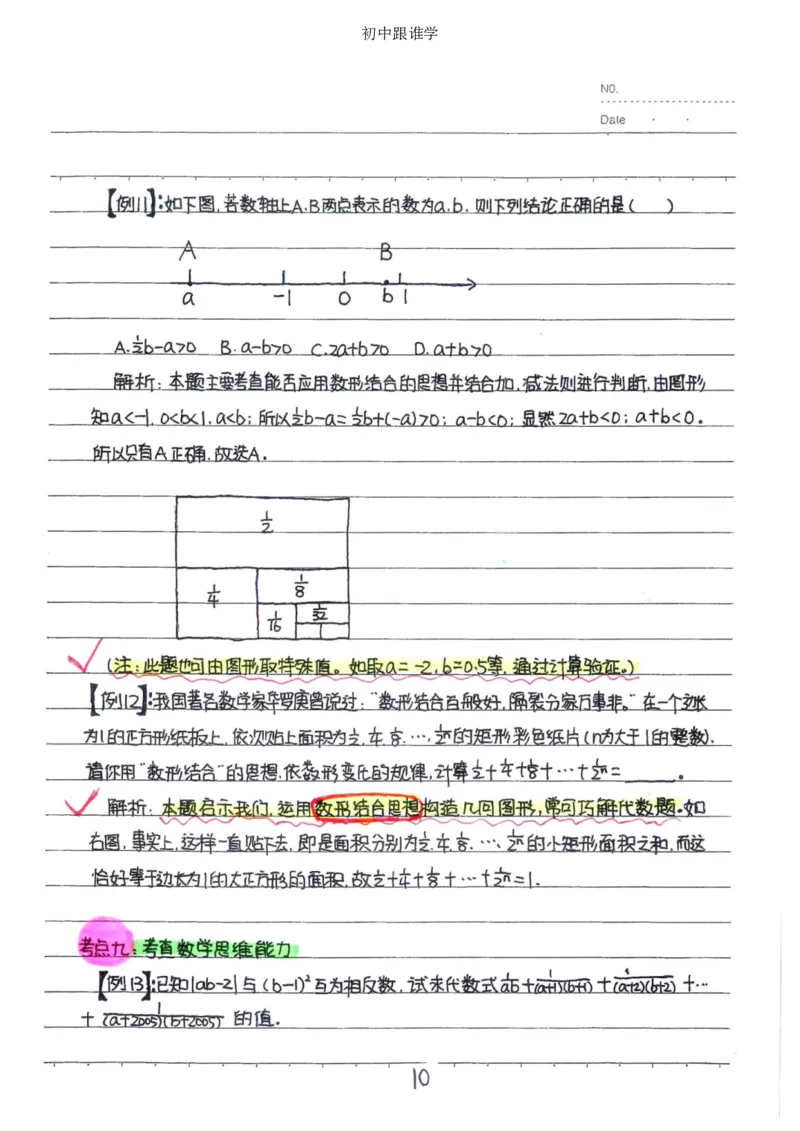 初中跟谁学
NO.
Date · ·
【例11】:如下图,若数轴上A、B两点表示的数为a、b,则下列结论正确的是( )
A B
a -1 0 b 1
A.½b-a>0 B.a-b>0 C.2a+b>0 D.a+b>0
解析:本题主要考查能否应用数形结合的思想并结合加、减法则进行判断,由图形
知a<-1,0<b<1,a<b;所以½b-a=½b+(-a)>0;a-b<0;显然2a+b<0;a+b<0。
所以只有A正确,故选A。
1/2
1/4 1/8
1/16 1/32
(注:此题也可由图形取特殊值。如取a=-2,b=0.5等,通过计算验证。)
【例12】:我国著名数学家华罗庚曾说过:"数形结合百般好,隔裂分家万事非。"在一个边长
为1的正方形纸板上,依次贴上面积为1/2,1/4,1/8,…,1/2ⁿ的矩形彩色纸片(n为大于1的整数).
请你用"数形结合"的思想,依数形变化的规律,计算1/2+1/4+1/8+…+1/2ⁿ=____。
解析:本题启示我们,运用数形结合思想构造几何图形,常可巧解代数题。如
右图,事实上,这样一直贴下去,即是面积分别为1/2,1/4,1/8,…,1/2ⁿ的小矩形面积之和,而这
恰好等于边长为1的大正方形的面积,故1/2+1/4+1/8+…+1/2ⁿ=1.
考点九:考查数学思维能力
【例13】:已知|ab-2|与(b-1)²互为相反数,试求代数式1/ab+1/(a+1)(b+1)+1/(a+2)(b+2)+…
+1/(a+2005)(b+2005)的值.
10